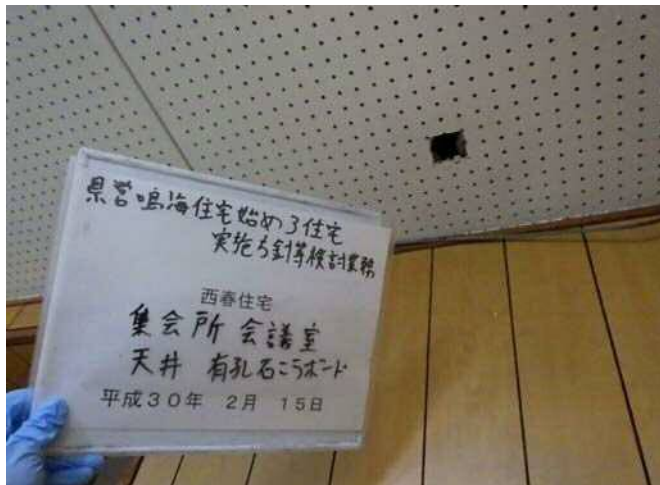 県営鳴海住宅始め3住宅
実施方針等検討業務
西春住宅
集会所 会議室
天井 有孔石こうボード
平成30年 2月 15日